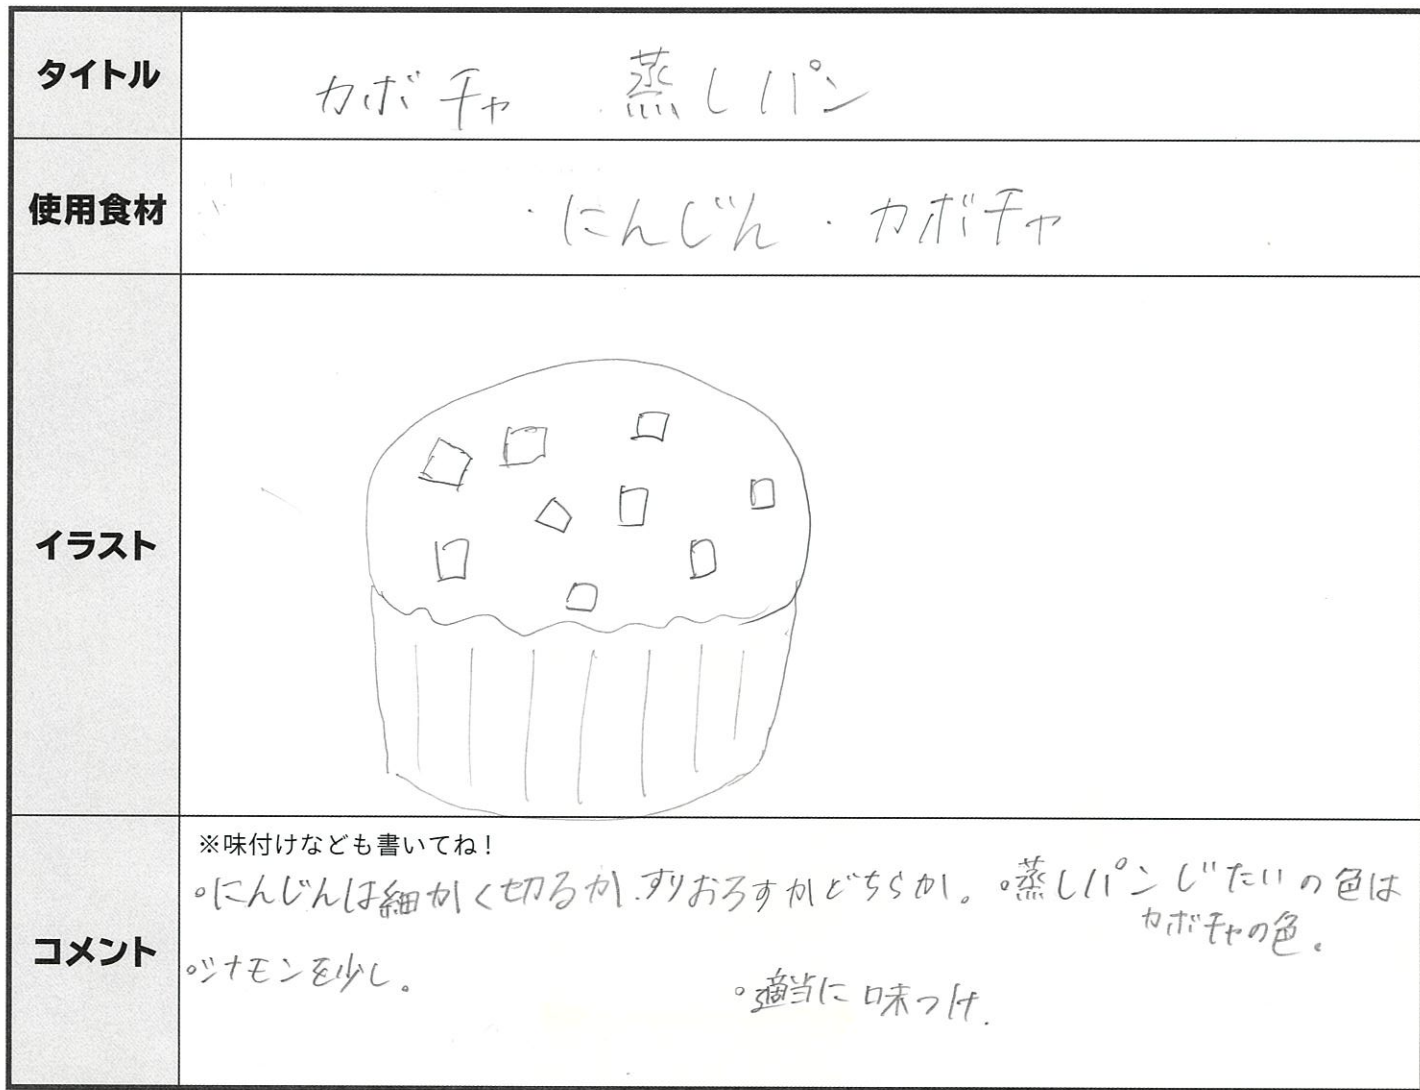 タイトル
カボチャ 蒸しパン
使用食材
・にんじん ・カボチャ
イラスト
コメント
※味付けなども書いてね！
。にんじんは細かく切るか.すりおろすかどちらか。
。蒸しパンじたいの色は
カボチャの色。
。シナモンを少し。
。適当に味つけ.